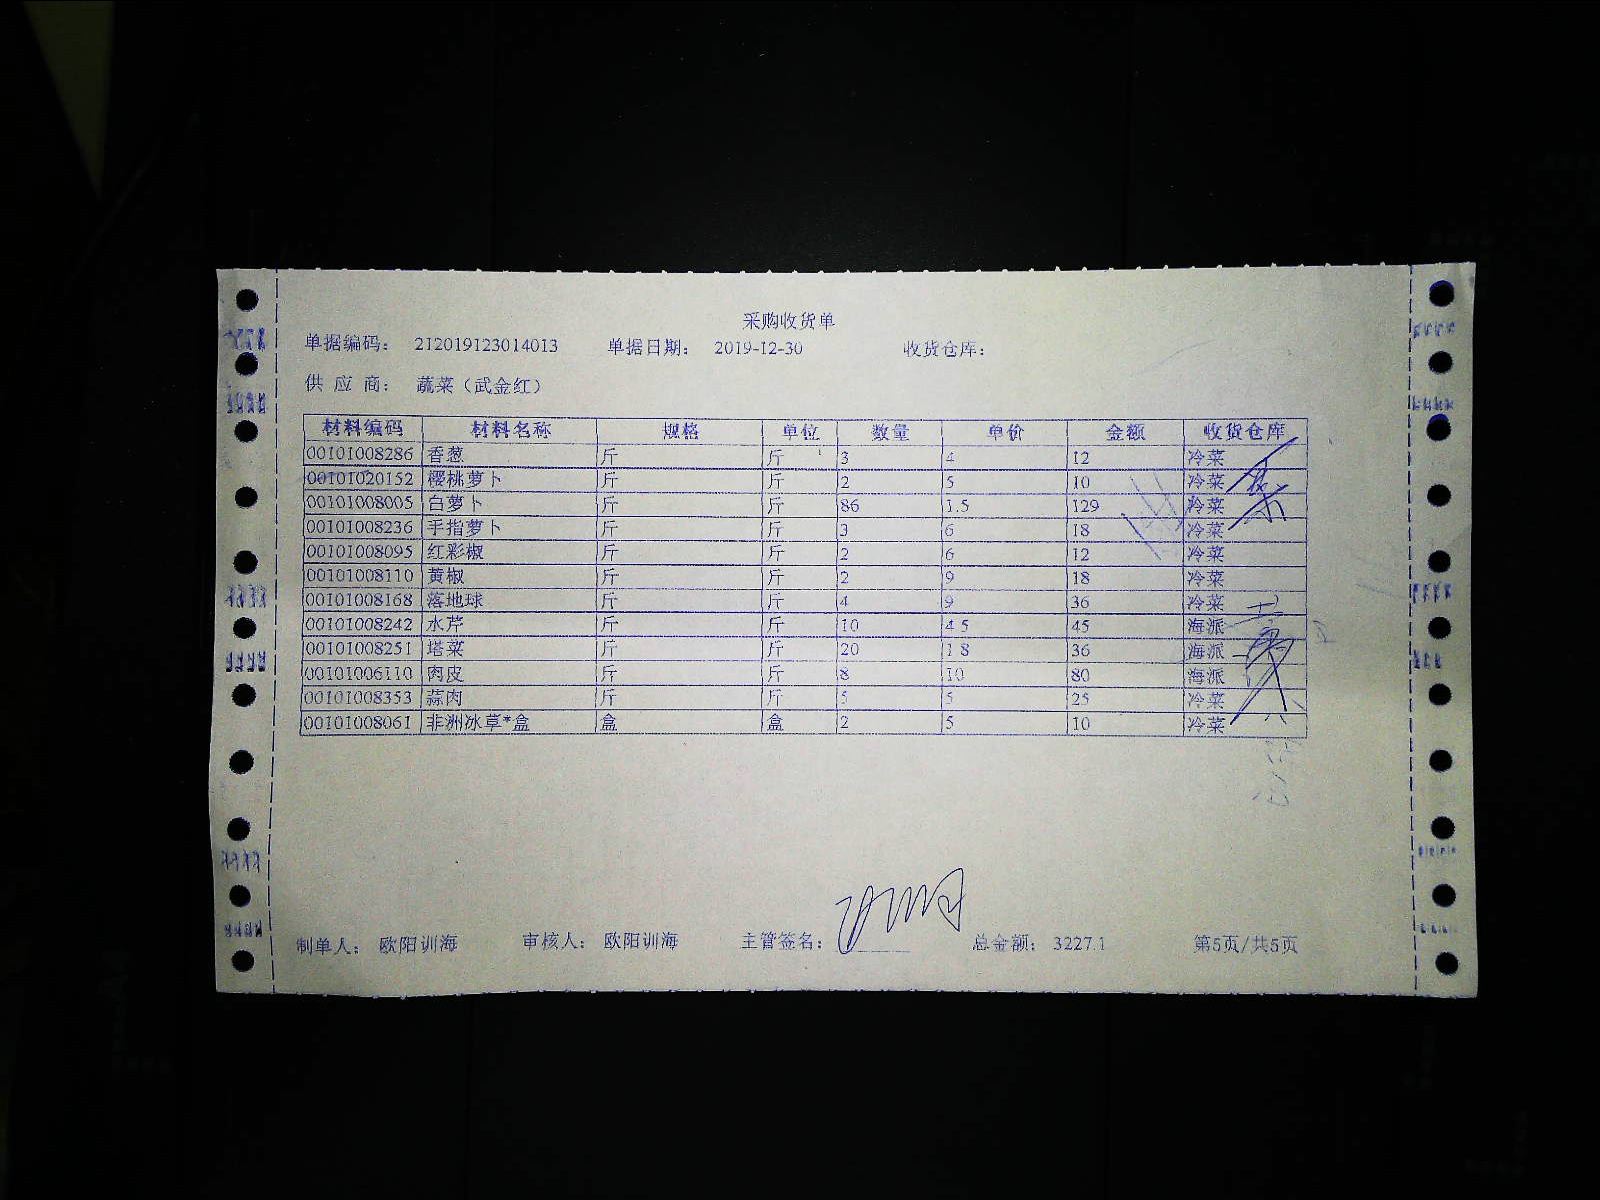 采购收货单
单据编码： 212019123014013 单据日期： 2019-12-30 收货仓库：
供 应 商： 蔬菜（武金红）
材料编码 材料名称 规格 单位 数量 单价 金额 收货仓库
00101008286 香葱 斤 斤 3 4 12 冷菜
00101020152 樱桃萝卜 斤 斤 2 5 10 冷菜
00101008005 白萝卜 斤 斤 86 1.5 129 冷菜
00101008236 手指萝卜 斤 斤 3 6 18 冷菜
00101008095 红彩椒 斤 斤 2 6 12 冷菜
00101008110 黄椒 斤 斤 2 9 18 冷菜
00101008168 落地球 斤 斤 4 9 36 冷菜
00101008242 水芹 斤 斤 10 4.5 45 海派
00101008251 塔菜 斤 斤 20 1.8 36 海派
00101006110 肉皮 斤 斤 8 10 80 海派
00101008353 蒜肉 斤 斤 5 5 25 冷菜
00101008061 非洲冰草*盒 盒 盒 2 5 10 冷菜
制单人： 欧阳训海 审核人： 欧阳训海 主管签名： 总金额： 3227.1 第5页/共5页